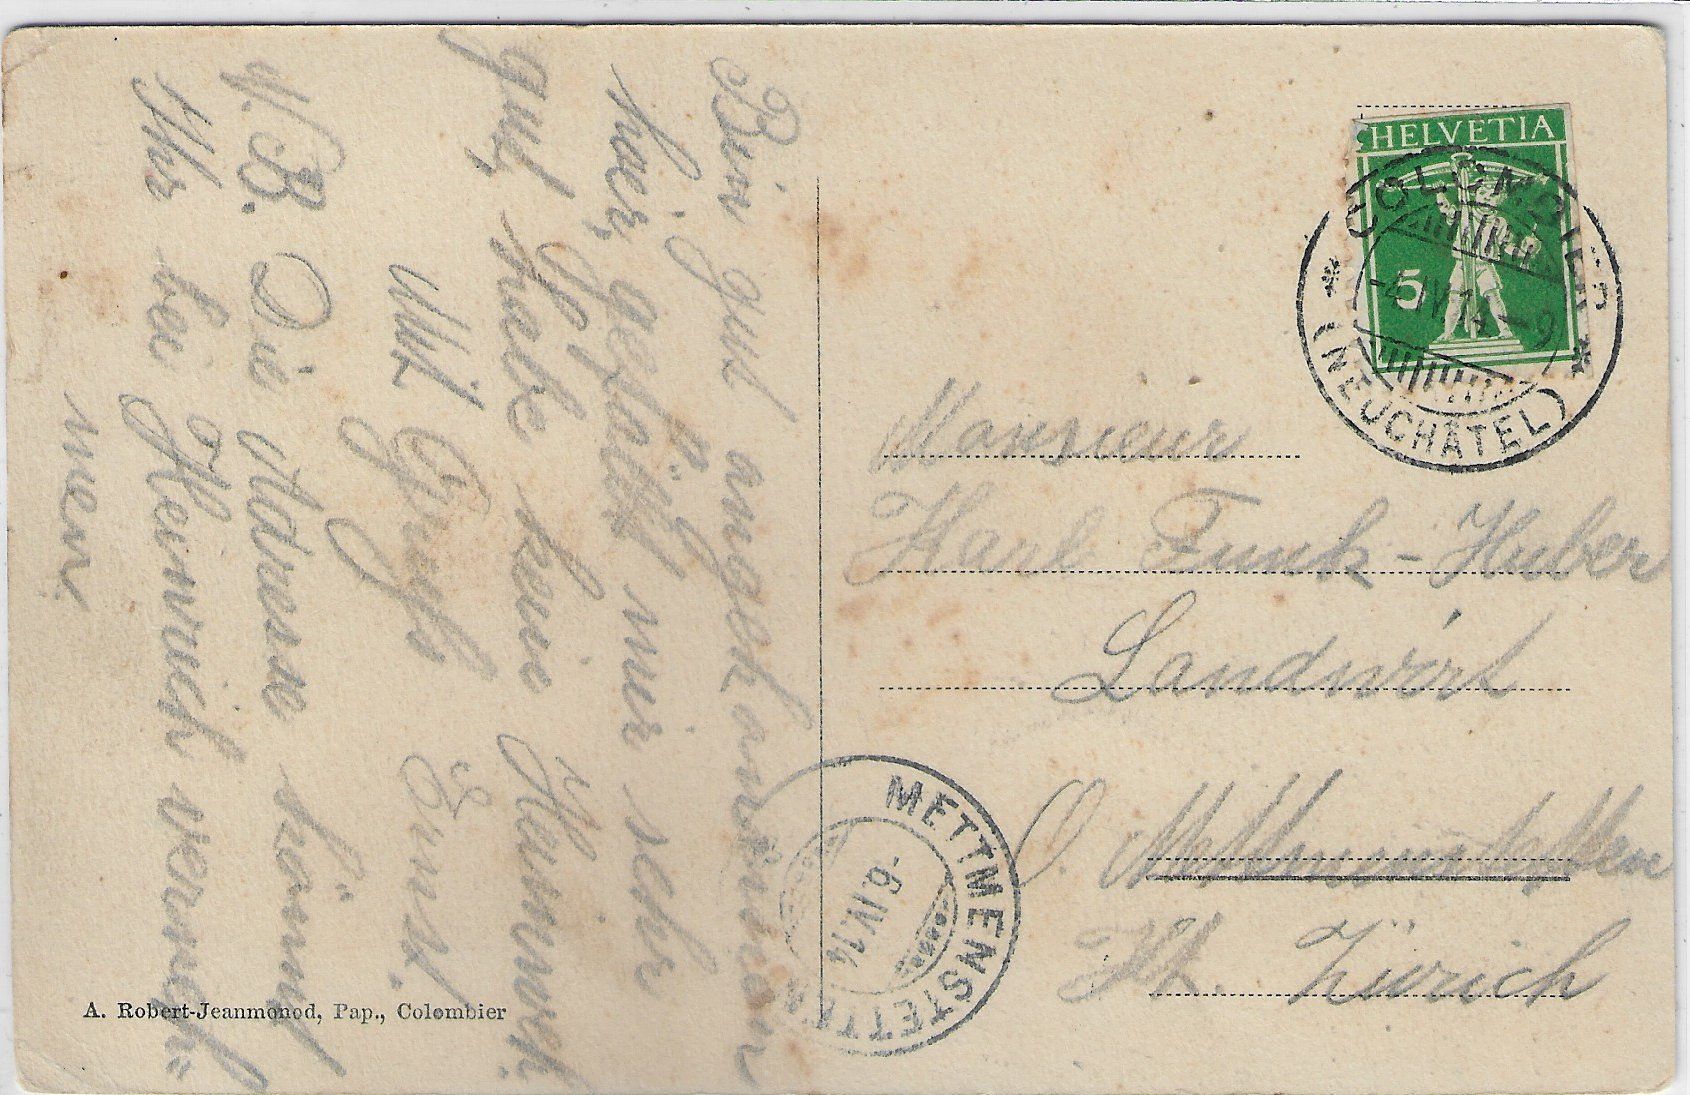 Bin gut angekommen
hier, gefällt mir sehr
gut, habe kein Heimweh
Mit Gruß Ernst.
N.B. Die Adresse könnt
Ihr bei Heinrich verneh-
men.
A. Robert-Jeanmonod, Pap., Colombier
HELVETIA
5
COLOMBIER
-4.IV.14-9
(NEUCHÂTEL)
Monsieur
Karl Funk-Huber
Landwirt
O. Mettmenstetten
Kt. Zürich
METTMENSTETTEN
-6.IV.14